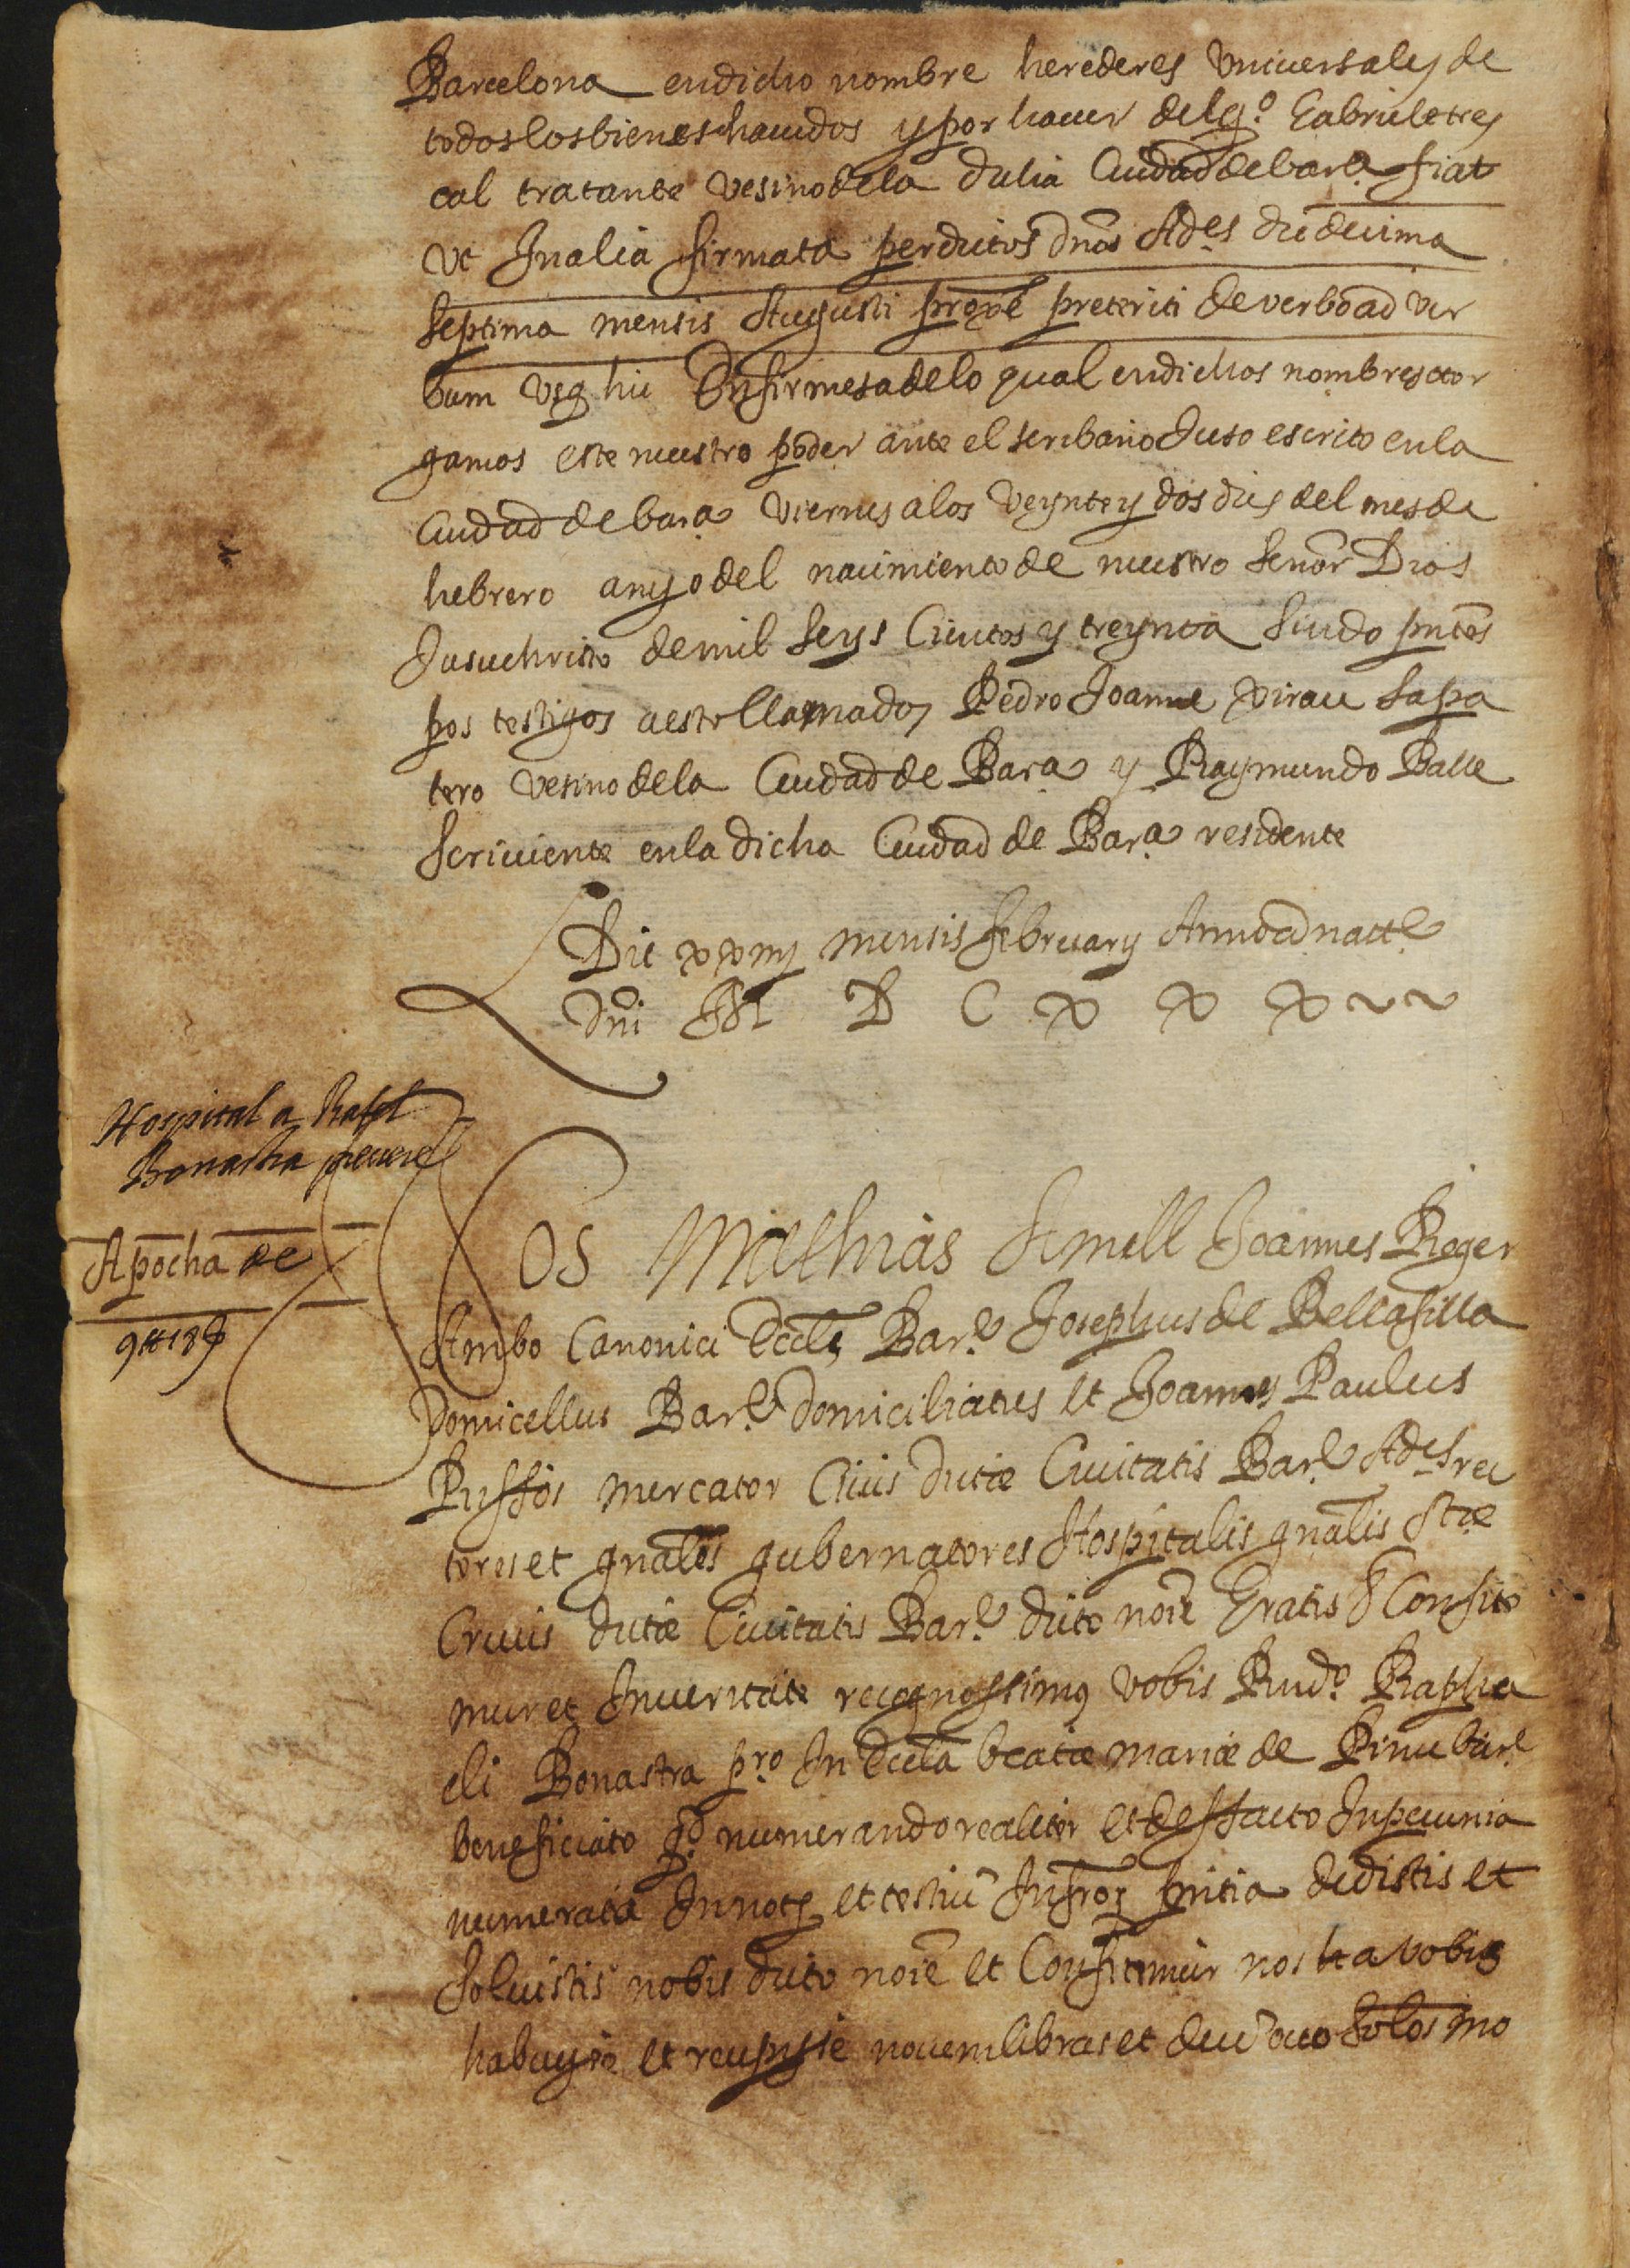 Barcelona en dicho nombre herederes vniuersales de
todos los bienes hauidos y por hauer del q.º Gabriel etres
cal tratante vesino de la dicha Ciudad de bar.a fiat
vt In alia firmata per dictos dnos Ades die decima
septima mensis Augusti proxe preteriti de verbo ad ver
bum vsq hic En firmesa de lo qual en dichos nombres otor
gamos este nuestro poder ante el scribano Juso escrito en la
Ciudad de bar.a viernes a los veynte y dos dies del mes de
hebrero anyo del nacimiento de nuestro Señor Dios
Jesuchristo de mil seys Cientos y treynta siendo pntes
pos testigos a esto llamados Pedro Joanne virau sapa
tero vesino de la Ciudad de Bar.a y Raymundo Balle
scriuiente en la dicha Ciudad de Bar.a residente
Die xxiij mensis february Anno a natte
Dni M D C X X X
Hospital a Rafel
Bonastra preuere
Apocha de
9 ℔ 18 ß
Nos Mathias Amell Joannes Roger
Ambo Canonici Eccle Bar.e Josephus de Bellafilla
Domicellus Bar.e domiciliatus et Joannes Paulus
Pussos mercator Ciuis dictæ Ciuitatis Bar.e Ades rec
tores et gnales gubernatores Hospitalis gnalis Stæ
Crucis dictæ Ciuitatis Bar.e dicto noie Gratis & Confite
mur et In veritate recognossimus vobis Rnd.o Rapha
eli Bonastra pro In Eccla beatæ mariæ de Pinu bar.e
beneficiato q.d numerando realiter et de facto In pecunia
numerata In notq et testiu Infrorq pntia dedistis et
soluistis nobis dicto noie et Confitemur nos ha vobis
habuysse et recepysse nouem libras et decem octo solos mo